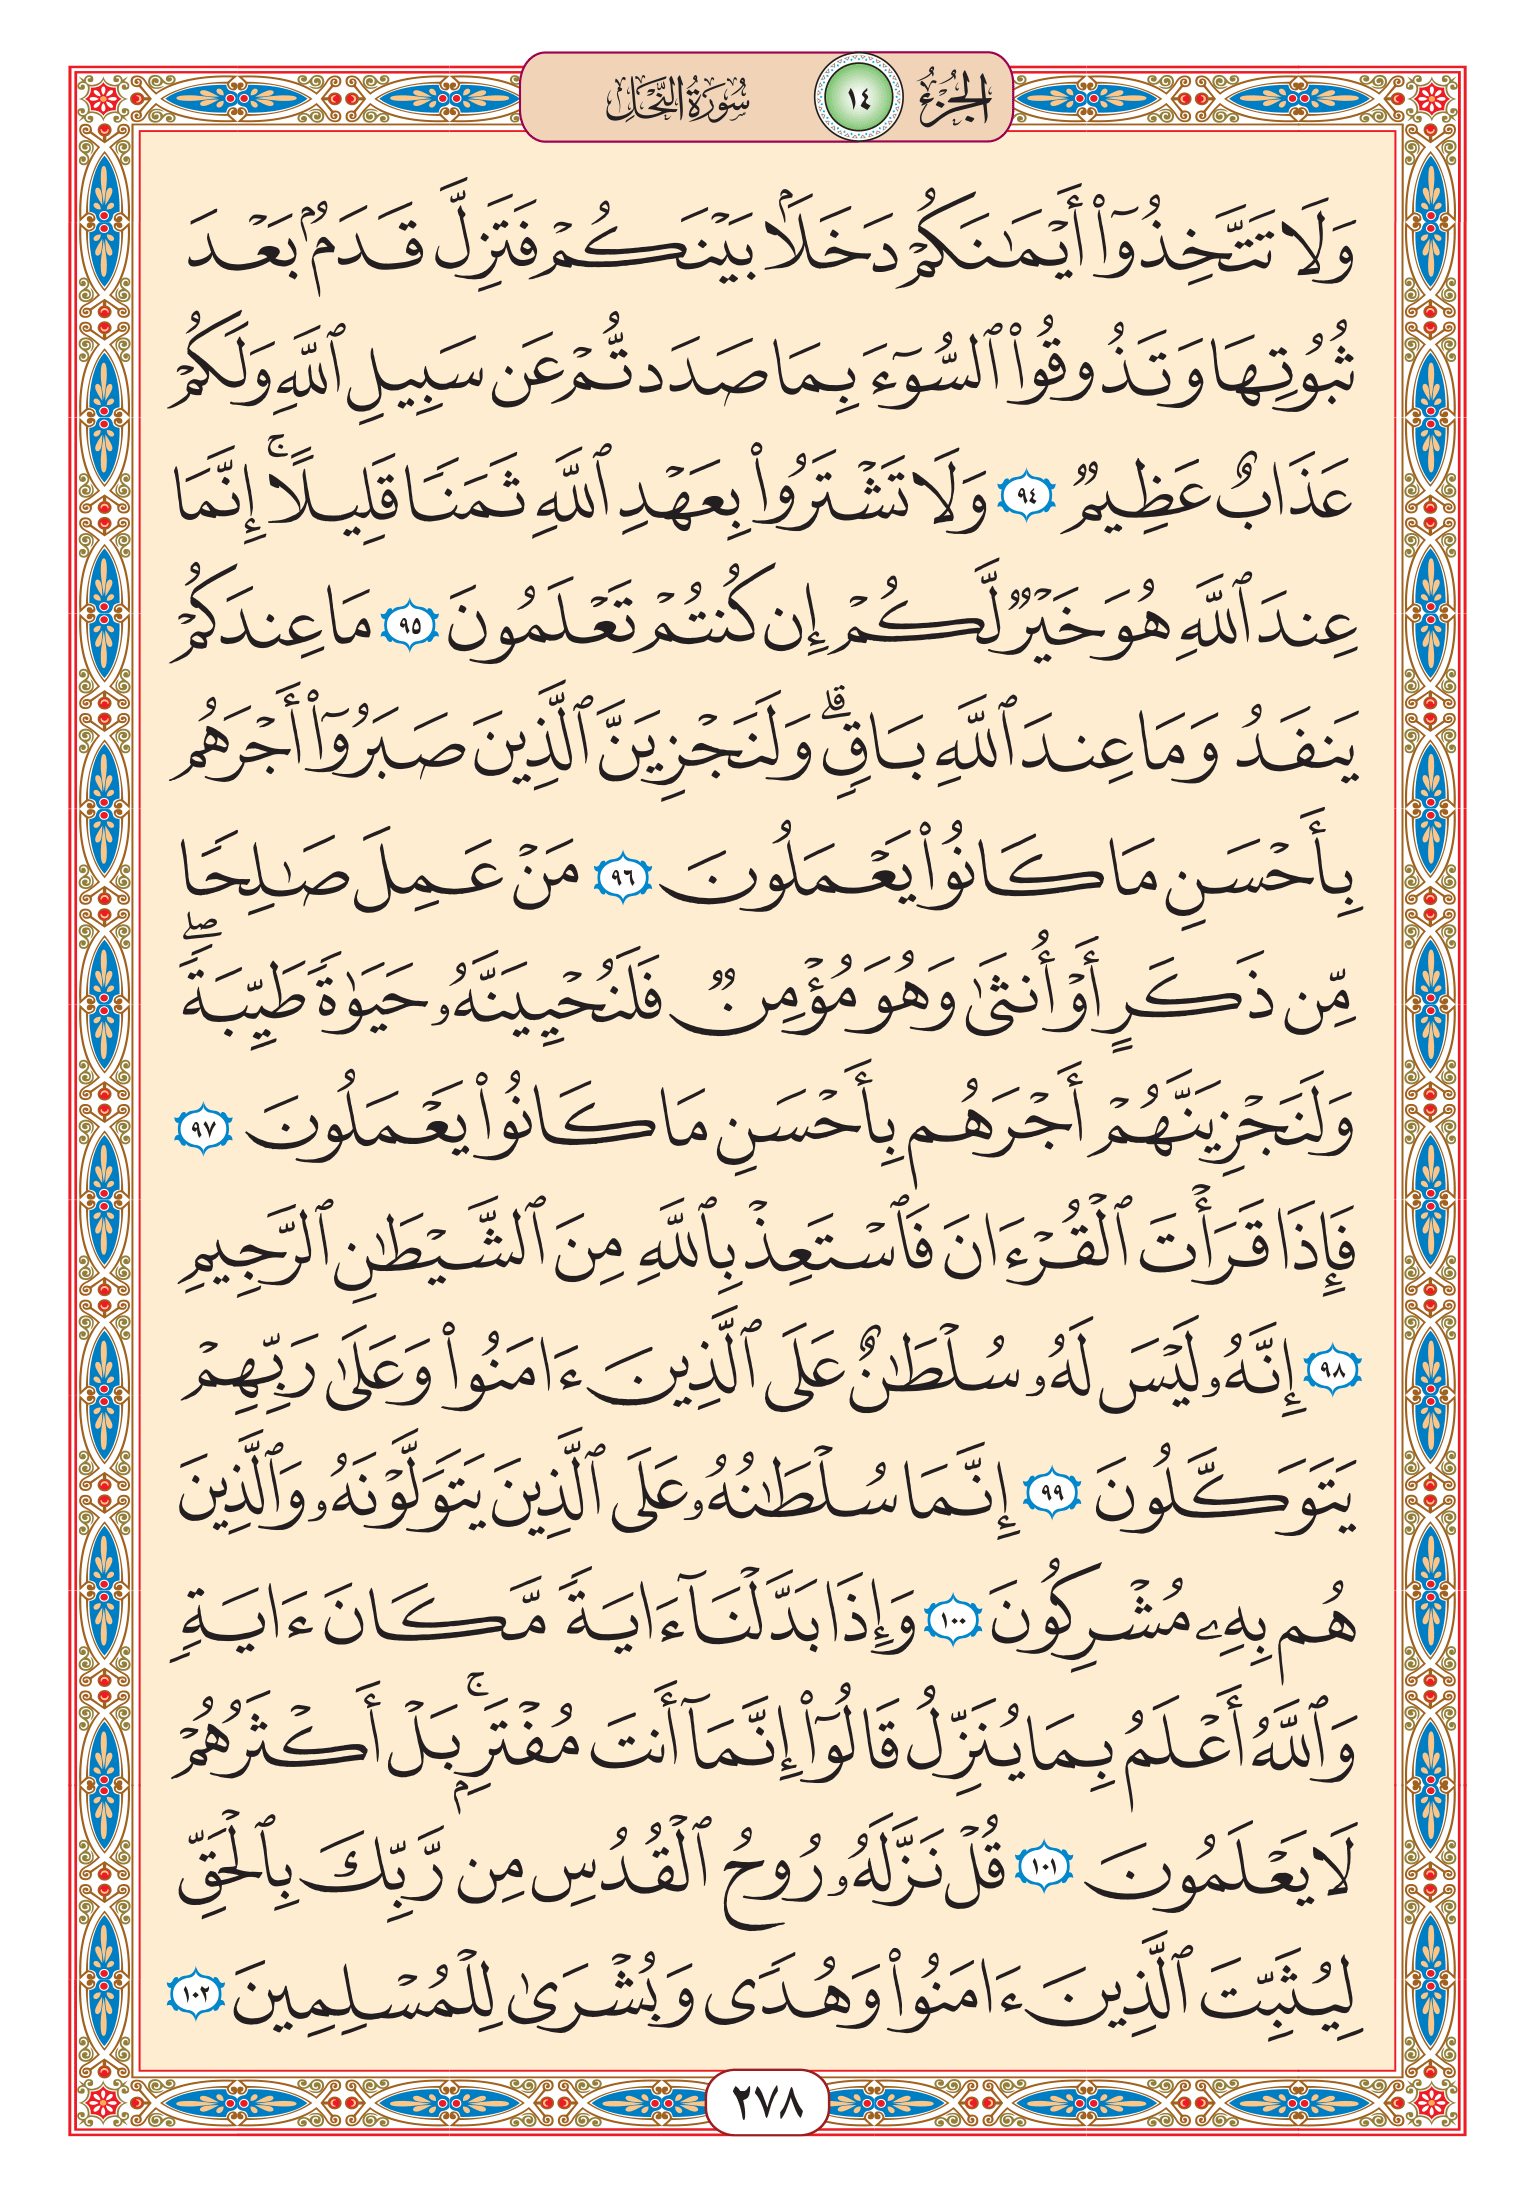 الجزء ١٤ سورة النحل
وَلَا تَتَّخِذُوٓا۟ أَيْمَٰنَكُمْ دَخَلًۢا بَيْنَكُمْ فَتَزِلَّ قَدَمٌۢ بَعْدَ
ثُبُوتِهَا وَتَذُوقُوا۟ ٱلسُّوٓءَ بِمَا صَدَدتُّمْ عَن سَبِيلِ ٱللَّهِ وَلَكُمْ
عَذَابٌ عَظِيمٌ ٩٤ وَلَا تَشْتَرُوا۟ بِعَهْدِ ٱللَّهِ ثَمَنًا قَلِيلًا ۚ إِنَّمَا
عِندَ ٱللَّهِ هُوَ خَيْرٌ لَّكُمْ إِن كُنتُمْ تَعْلَمُونَ ٩٥ مَا عِندَكُمْ
يَنفَدُ وَمَا عِندَ ٱللَّهِ بَاقٍ ۗ وَلَنَجْزِيَنَّ ٱلَّذِينَ صَبَرُوٓا۟ أَجْرَهُم
بِأَحْسَنِ مَا كَانُوا۟ يَعْمَلُونَ ٩٦ مَنْ عَمِلَ صَٰلِحًا
مِّن ذَكَرٍ أَوْ أُنثَىٰ وَهُوَ مُؤْمِنٌ فَلَنُحْيِيَنَّهُۥ حَيَوٰةً طَيِّبَةً ۖ
وَلَنَجْزِيَنَّهُمْ أَجْرَهُم بِأَحْسَنِ مَا كَانُوا۟ يَعْمَلُونَ ٩٧
فَإِذَا قَرَأْتَ ٱلْقُرْءَانَ فَٱسْتَعِذْ بِٱللَّهِ مِنَ ٱلشَّيْطَٰنِ ٱلرَّجِيمِ
٩٨ إِنَّهُۥ لَيْسَ لَهُۥ سُلْطَٰنٌ عَلَى ٱلَّذِينَ ءَامَنُوا۟ وَعَلَىٰ رَبِّهِمْ
يَتَوَكَّلُونَ ٩٩ إِنَّمَا سُلْطَٰنُهُۥ عَلَى ٱلَّذِينَ يَتَوَلَّوْنَهُۥ وَٱلَّذِينَ
هُم بِهِۦ مُشْرِكُونَ ١٠٠ وَإِذَا بَدَّلْنَآ ءَايَةً مَّكَانَ ءَايَةٍ
وَٱللَّهُ أَعْلَمُ بِمَا يُنَزِّلُ قَالُوٓا۟ إِنَّمَآ أَنتَ مُفْتَرٍۭ ۚ بَلْ أَكْثَرُهُمْ
لَا يَعْلَمُونَ ١٠١ قُلْ نَزَّلَهُۥ رُوحُ ٱلْقُدُسِ مِن رَّبِّكَ بِٱلْحَقِّ
لِيُثَبِّتَ ٱلَّذِينَ ءَامَنُوا۟ وَهُدًى وَبُشْرَىٰ لِلْمُسْلِمِينَ ١٠٢
٢٧٨